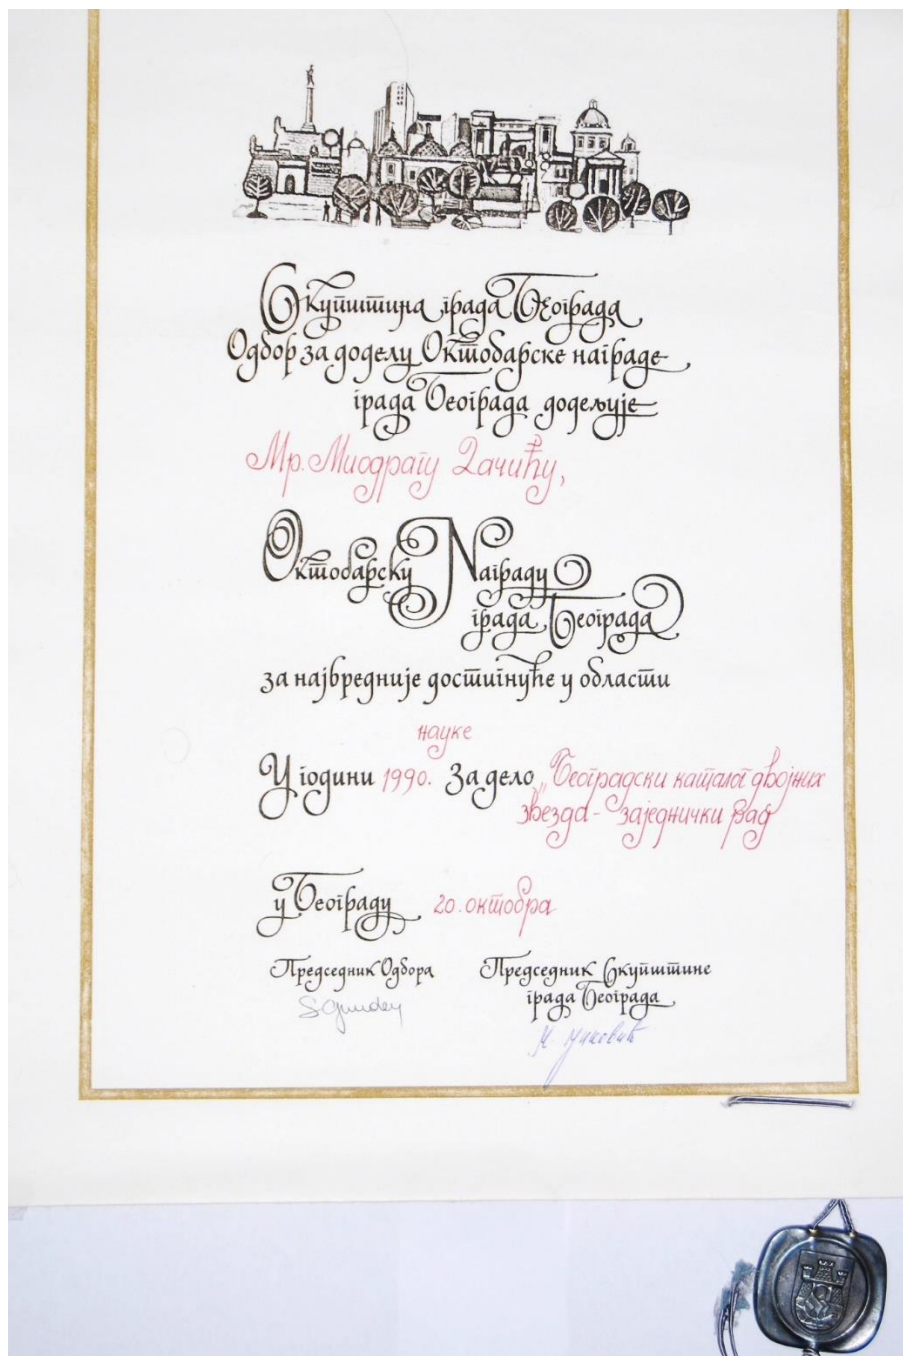 Скупштина града Београда
Одбор за доделу Октобарске награде
града Београда додељује
Мр. Миодрагу Дачићу,
Октобарску Награду
града Београда
за највредније достигнуће у области
науке
У години 1990. За дело „Београдски каталог двојних
звезда - заједнички рад
у Београду 20. октобра
Председник Одбора Председник Скупштине
града Београда